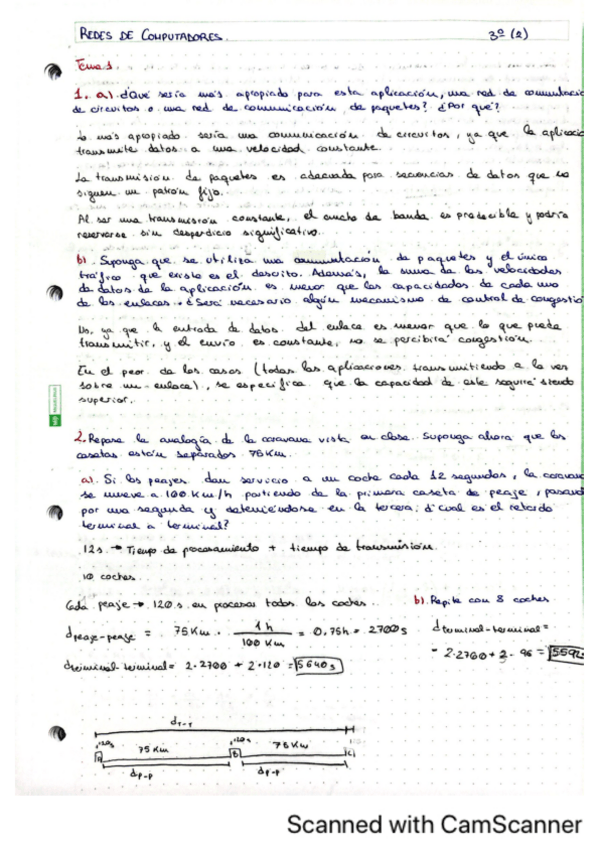 REDES DE COMPUTADORES.
3º (2)
Tema 1
1. a) ¿Qué sería más apropiado para esta aplicación, una red de conmutació
de circuitos o una red de comunicación de paquetes? ¿Por qué?
Lo más apropiado sería una comunicación de circuitos, ya que la aplicació
transmite datos a una velocidad constante.
La transmisión de paquetes es adecuada para secuencias de datos que no
siguen un patrón fijo.
Al ser una transmisión constante, el ancho de banda es predecible y podría
reservarse sin desperdicio significativo.
b) Suponga que se utiliza una conmutación de paquetes y el único
tráfico que existe es el descrito. Además, la suma de las velocidades
de datos de la aplicación es menor que las capacidades de cada uno
de los enlaces. ¿Será necesario algún mecanismo de control de congestió
No, ya que la entrada de datos del enlace es menor que lo que puede
transmitir, y el envío es constante, no se percibirá congestión.
En el peor de los casos (todas las aplicaciones transmitiendo a la vez
sobre un enlace), se especifica que la capacidad de este seguirá siendo
superior.
2. Repase la analogía de la caravana vista en clase. Suponga ahora que las
casetas están separadas 75 Km.
a) Si los peajes dan servicio a un coche cada 12 segundos, la caravana
se mueve a 100 Km/h partiendo de la primera caseta de peaje, pasand
por una segunda y deteniéndose en la tercera, ¿cuál es el retardo
terminal a terminal?
12s → Tiempo de procesamiento + tiempo de transmisión.
10 coches.
Cada peaje → 120 s en procesar todos los coches.
d peaje-peaje = 75 Km · 1 h / 100 Km = 0,75h = 2700 s
d terminal-terminal = 2·2700 + 2·120 = 5640 s
b) Repite con 8 coches
d terminal-terminal =
= 2·2700 + 2·96 = 5592
dT-T
120s
75 Km
120s
75 Km
A
B
C
dp-p
dp-p
Scanned with CamScanner